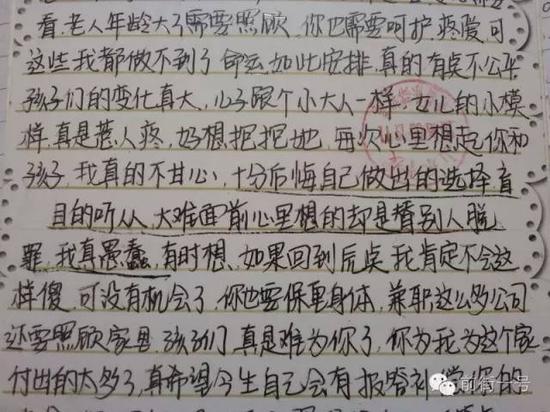 看.老人年龄大了需要照顾.你也需要呵护.疼爱.可
这些我都做不到了命运如此安排.真的有点不公平
孩子们的变化真大.儿子跟个小大人一样.女儿的小模
样.真是惹人疼.好想抱抱她.每次心里想起你和
孩子.我真的不甘心.十分后悔自己做出的选择盲
目的听从.大难面前心里想的却是替别人脱
罪.我真愚蠢.有时想.如果回到原点我肯定不会这
样傻 可没有机会了.你也要保重身体.兼职这么多公司
还要照顾家里.孩子们 真是难为你了.你为我为这个家
付出的太多了.真希望今生自己会有报答补偿你的
前街一号